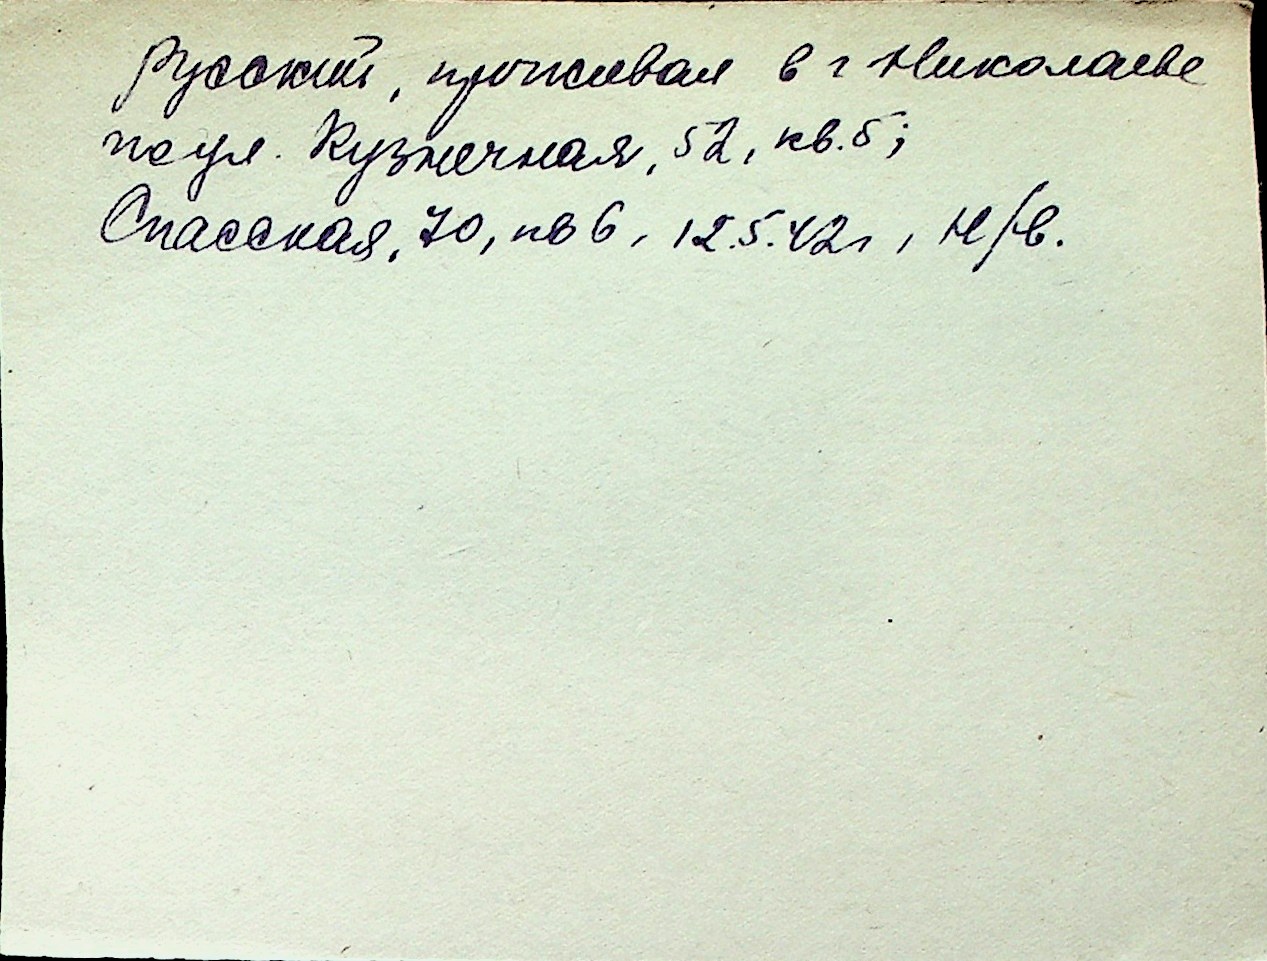 Русский, проживал в г Николаеве
по ул. Кузнечная, 52, кв. 5;
Спасская, 70, кв 6, 12.5.42г, Н/в.